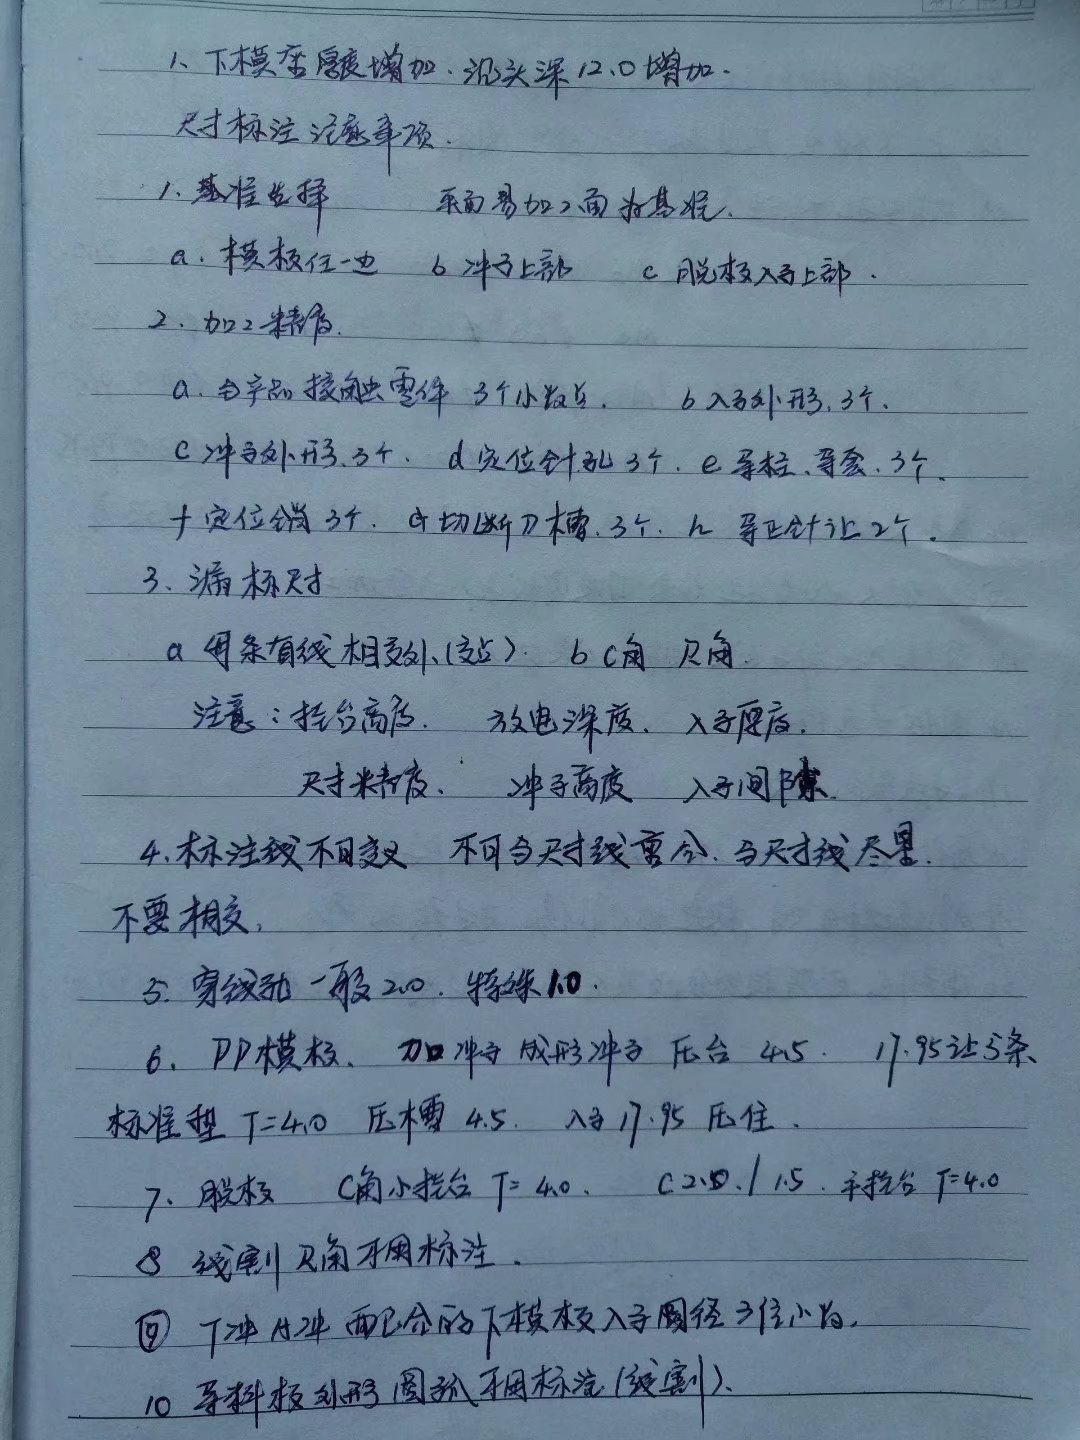 1、下模座厚度增加.沉头深12.0增加.
尺寸标注注意事项.
1.基准选择 平面易加工面为基准.
a.模板任一边 b冲子上部 c脱板入子上部.
2.加工精度.
a.与产品接触零件 3个小数点. b入子外形.3个.
c冲子外形.3个. d定位针孔3个. e导柱、导套.3个.
f定位销3个. 切断刀槽.3个. h 导正针让2个.
3、漏标尺寸
a 每条直线相交处(交点). b C角 R角.
注意:挂台高度. 放电深度. 入子厚度.
尺寸精度. 冲子高度 入子间隙.
4.标注线不可交叉 不可与尺寸线重合.与尺寸线尽量.
不要相交.
5.穿线孔一般2.0.特殊1.0.
6、PP模板、加冲子成形冲子 压台 4.5. 17.95让5条
标准型T=4.0 压槽 4.5. 入子17.95压住.
7、脱板 C角小挂台 T=4.0. C2.0./1.5.半挂台T=4.0
8 线割R角不用标注.
⑨ T冲A冲 配合的下模板入子圆径3位小数.
10 导料板外形圆弧不用标注(线割).